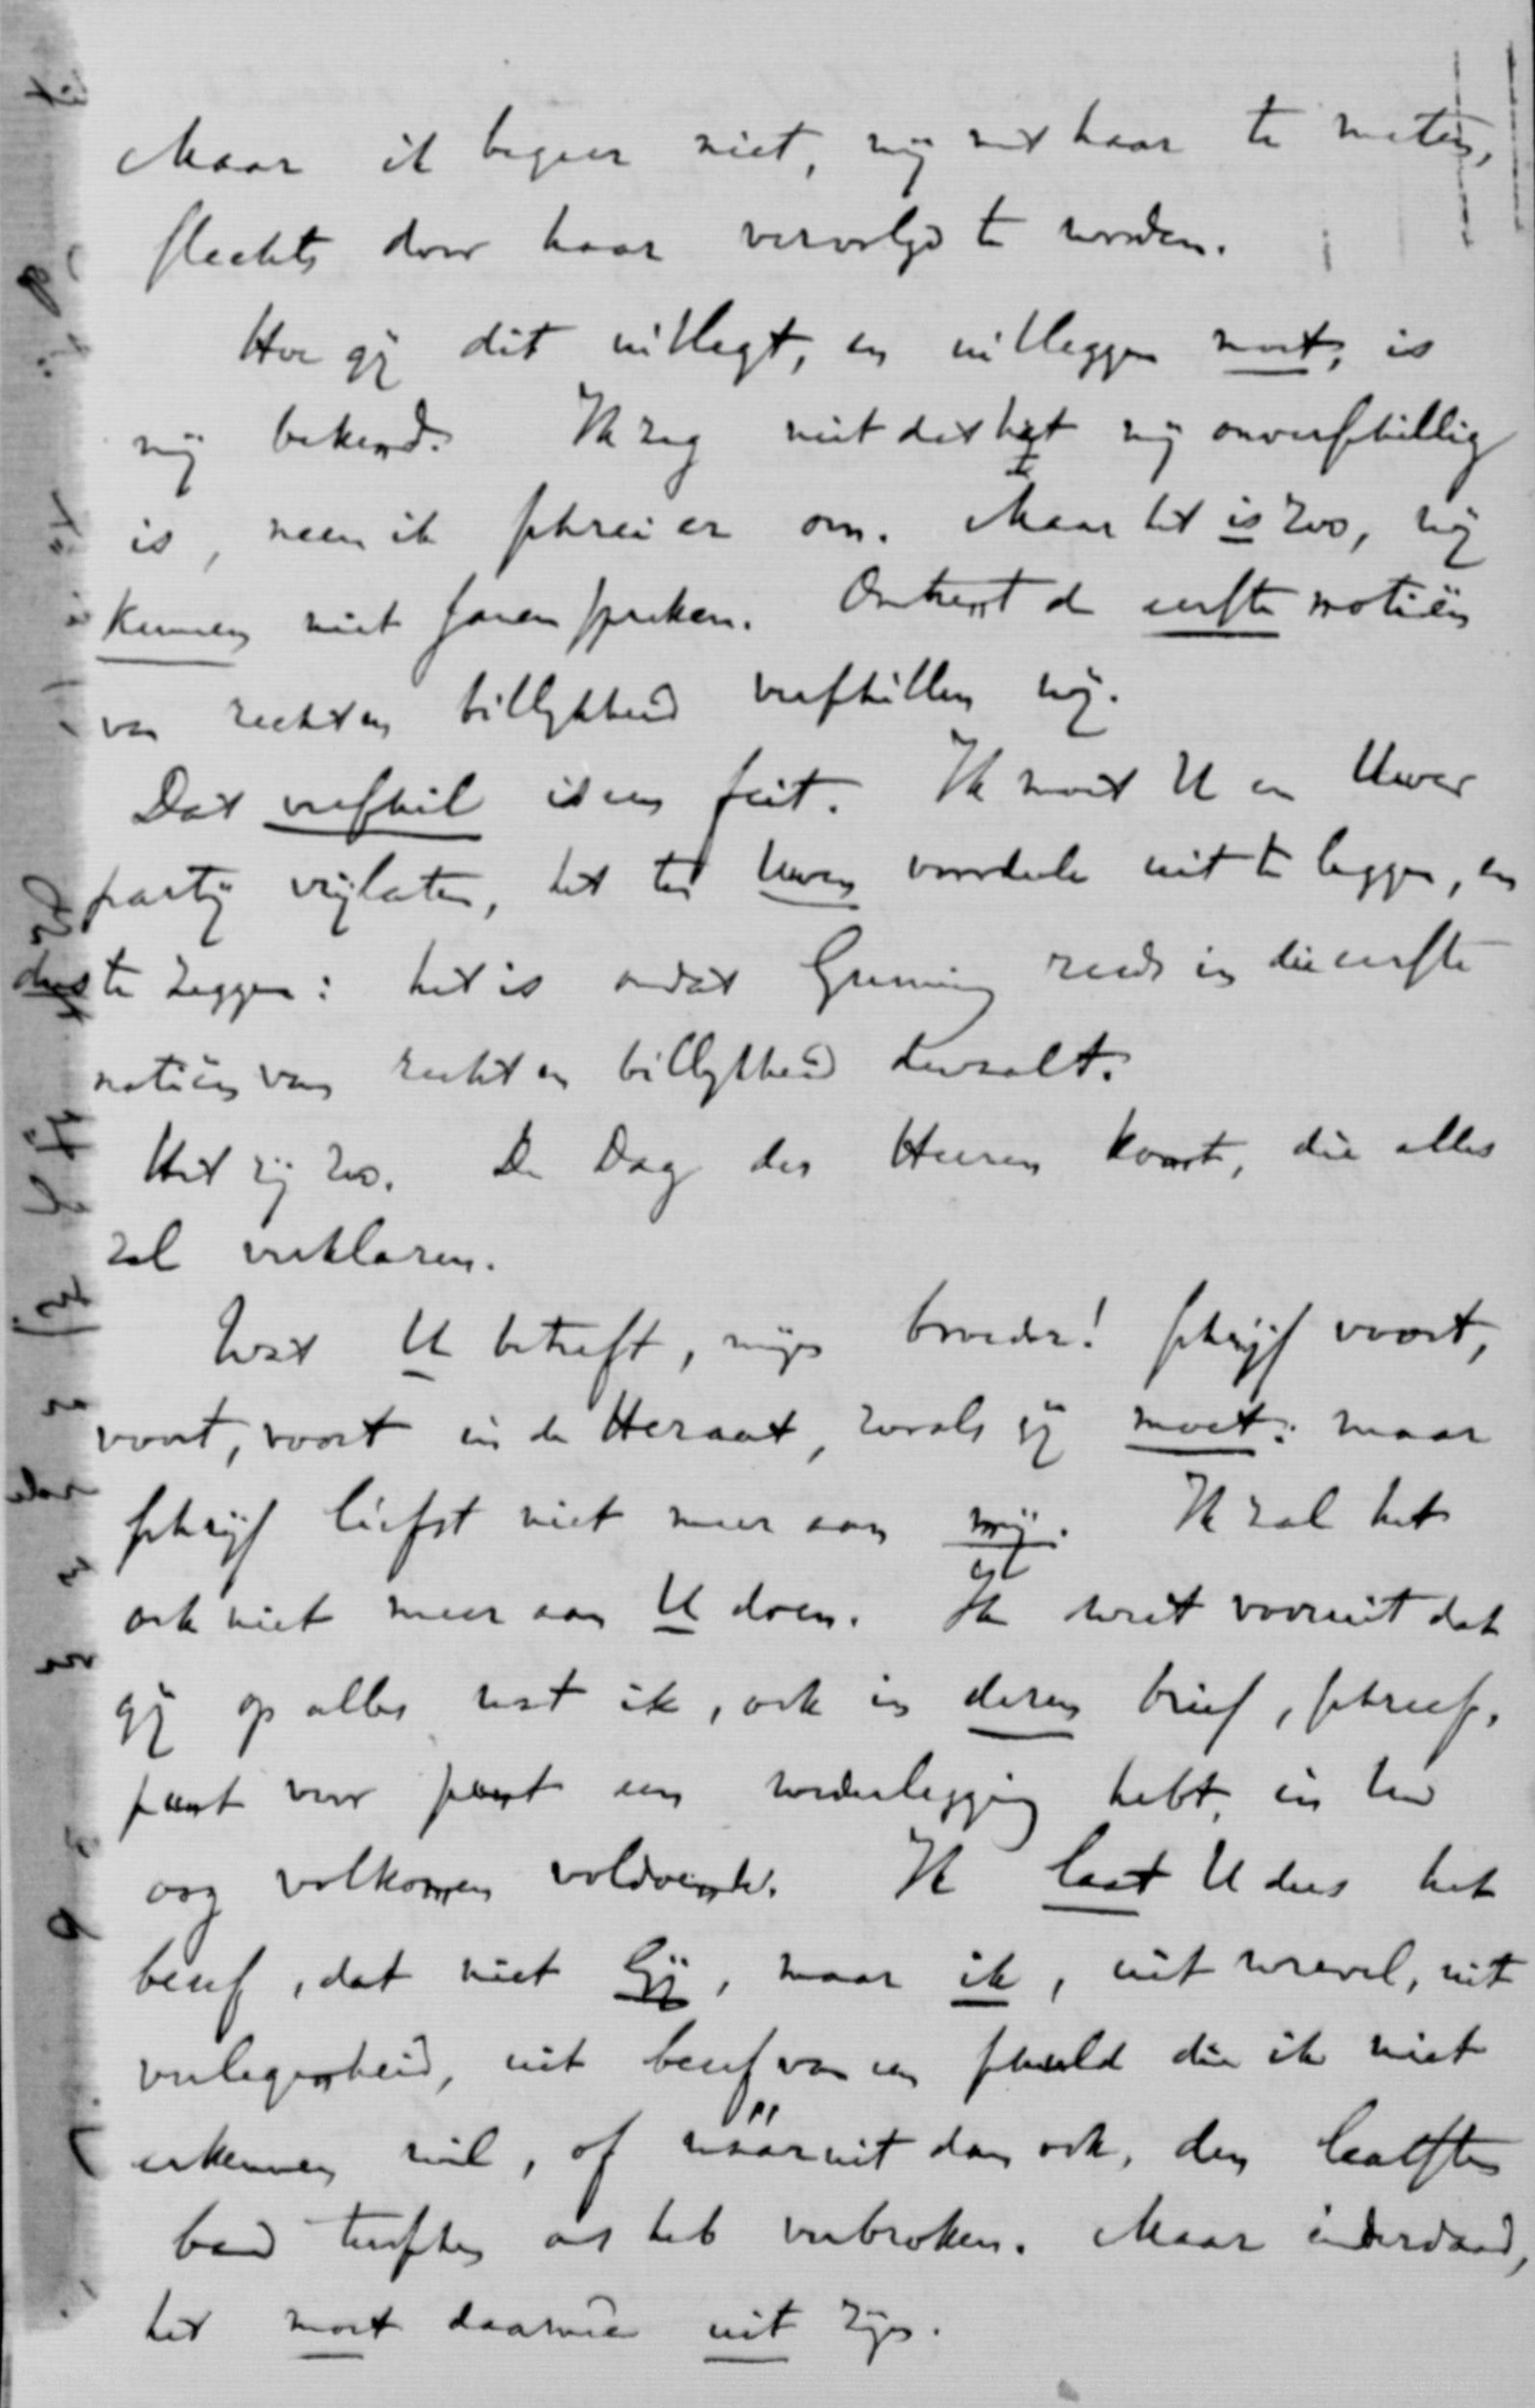 Maar ik begeer niet, mij met haar te meten,
slechts door haar vervolgd te worden.
Hoe gij dit uitlegt, en uitleggen moet, is
mij bekend. Ik zeg niet dat het mij onverschillig
is, neen ik schrei er om. Maar het is zoo, wij
kunnen niet samenspreken. Omtrent de eerste notiën
van recht en billijkheid verschillen wij.
Dat verschil is een feit. Ik moet U en Uwer
partij vrijlaten, het ten Uwen voordeele uit te leggen, en
dus te zeggen: het is omdat Gunning reeds in die eerste
notiën van recht en billijkheid dwaalt.
Het zij zoo. De Dag des Heeren komt, die alles
zal verklaren.
Wat U betreft, mijn broeder! schrijf voort,
voort, voort in de Heraut, zooals gij moet: maar
schrijf liefst niet meer aan mij. Ik zal het
ook niet meer aan U doen. Ik weet vooruit dat
gij op alles wat ik, ook in dezen brief, schreef,
punt voor punt een wederlegging hebt, in Uw
oog volkomen voldoende. Ik laat U dus het
besef, dat niet Gij, maar ik, uit wrevel, uit
verlegenheid, uit besef van een schuld die ik niet
erkennen wil, of wááruit dan ook, den laatsten
band tusschen ons heb verbroken. Maar inderdaad,
het moet daarmee uit zijn.